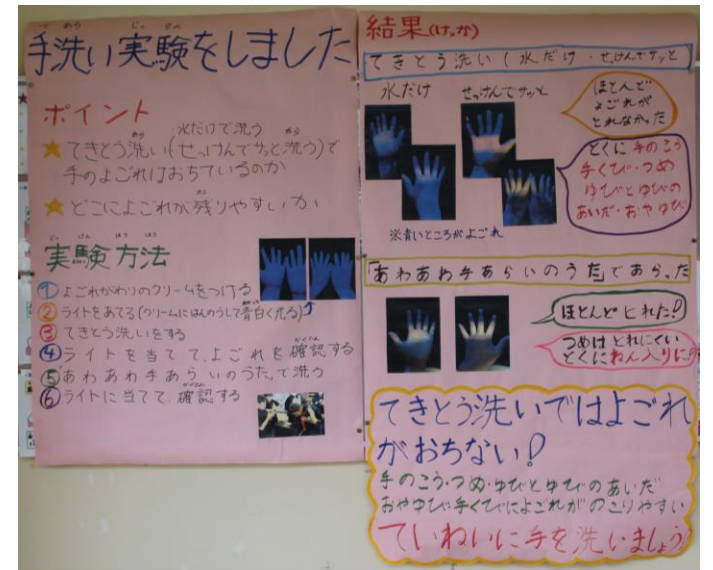 手洗い実験をしました
ポイント
水だけで洗う
★てきとう洗い(せっけんでサッと洗う)で
手のよごれはおちているのか
★どこによごれが残りやすいか
実験方法
①よごれがわりのクリームをつける
②ライトをあてる(クリームにはんのうして青白く光る)↑
③てきとう洗いをする
④ライトを当てて、よごれを確認する
⑤「あわあわ手あらいのうた」で洗う
⑥ライトに当てて、確認する
結果(けっか)
てきとう洗い(水だけ・せっけんでサッと
水だけ
せっけんでサッと
ほとんど
よごれが
とれなかった
とくに手のこう
手くび・つめ
ゆびとゆびの
あいだ・おやゆび
※青いところがよごれ
「あわあわ手あらいのうた」であらった
ほとんどとれた!!
つめはとれにくい
とくにねん入りに!!
てきとう洗いではよごれ
がおちない!!
手のこう・つめ・ゆびとゆびのあいだ
おやゆび・手くびによごれがのこりやすい
ていねいに手を洗いましょう!